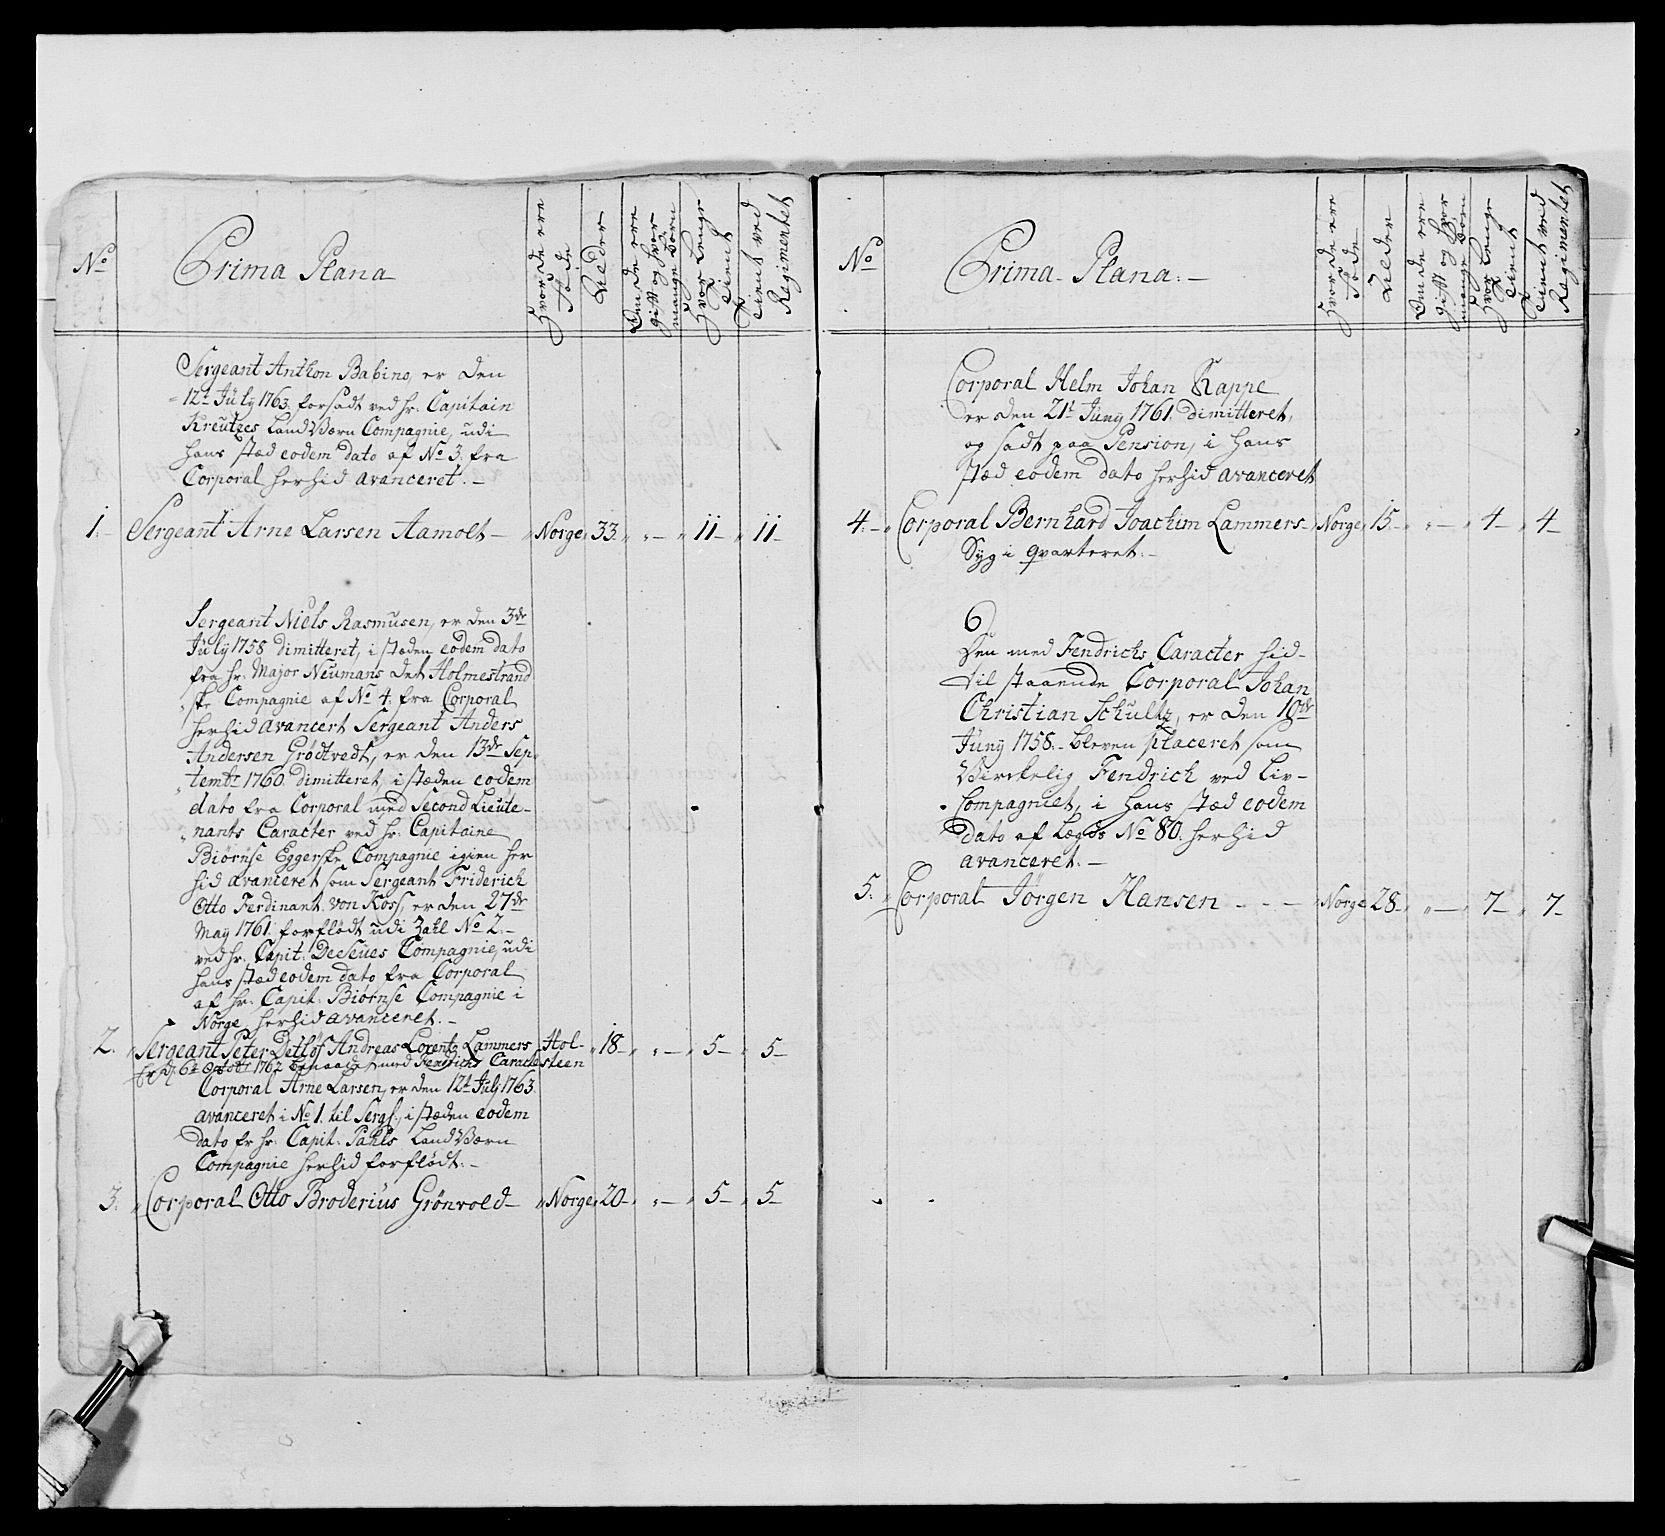 No
Prima Plana
Hvor de ere
føde
Alder
Om de ere
gift og hvor
mange Børn
Hvor Lenge
tient
tient ved
Regimentet
Sergeant Anthon Babino, er den
12t July 1763. forsadt ved hr. Capitain
Kreutzes Land Værn Compagnie, udi
hans stæd eodem dato af No 3. fra
Corporal herhid avanceret. -
1. Sergeant Arne Larsen Aamolt - Norge 33 " - 11 - 11 -
Sergeant Niels Rasmusen, er den 3de
July 1758 dimitteret, i stæden eodem dato
fra hr. Major Neumans det Holmestrand
ske Compagnie af No 4. fra Corporal
herhid avancert Sergeant Anders
Andersen Grødtvedt, er den 13de Sep-
tembr 1760. dimitteret, i stæden eodem
dato fra Corporal med Second Lieute-
nants Caracter ved hr. Capitaine
Biørnse Eggerske Compagnie igien her
hid avanceret som Sergeant Friderich
Otto Ferdinant von Koss, er den 27de
May 1761. forflødt udi Zahl No 2. -
ved hr. Capit: DeSeües Compagnie, udi
hans stæd eodem dato fra Corporal
af hr. Capit: Biørnse Compagnie i
Norge herhid avanceret. -
2. Sergeant Peter Detløf Andreas Lorentz Lammers Hol- 18 - " - 5 - 5 -
6t Octobr 1762 benaadet med Fendrichs Caracter steen
Corporal Arne Larsen, er den 12t July 1763.
avanceret i No 1. til Sergt., i stæden eodem
dato fr hr. Capit: Pahls Land Værn
Compagnie herhid forflødt. -
3. Corporal Otto Broderius Grønvold - Norge 20 - " - 5 - 5 -
No
Prima Plana. -
Hvor de ere
føde
Alder
Om de ere
gift og hvor
mange Børn
Hvor Lenge
tient
tient ved
Regimentet
Corporal Helm Johan Kappe
er den 21t Juny 1761. dimitteret,
og sadt paa Pension, i hans
stæd eodem dato herhid avanceret
4. - Corporal Bernhard Joachim Lammers - Norge 15 - " - 4 - 4 -
Syg i qvarteret. -
Den med Fendrichs Caracter hid-
til staaende Corporal Johan
Christian Schultz, er den 10de
Juny 1758. - bleven placeret som
Virckelig Fendrich ved Liv-
Compagniet, i hans stæd eodem
dato af Lægds No 80. herhid
avanceret. -
5. Corporal Jørgen Hansen - - - Norge 28 - " - 7 - 7 -